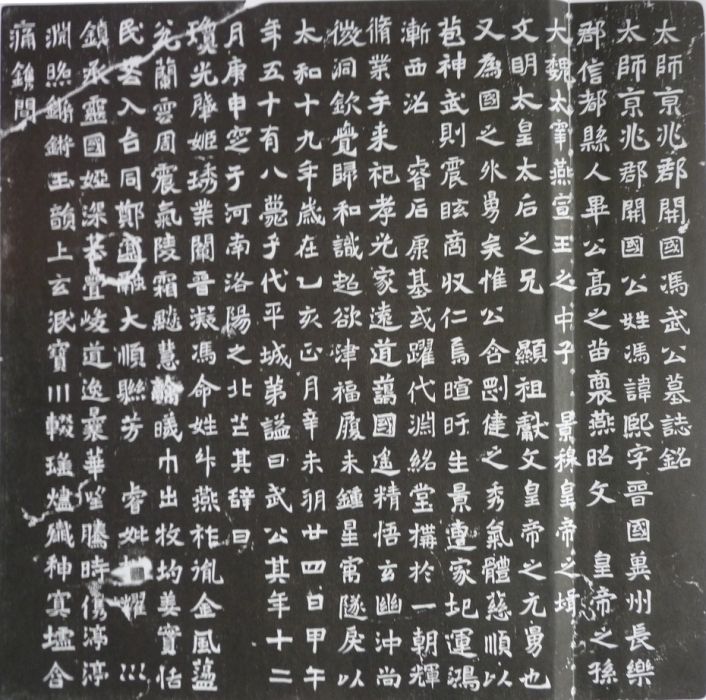 太師京兆郡開國馮武公墓誌銘
太師京兆郡開國公姓馮諱熙字晉國冀州長樂
郡信都縣人畢公高之苗裔燕昭文 皇帝之孫
大魏太宰燕宣王之中子 景穆皇帝之壻
文明太皇太后之兄 顯祖獻文皇帝之元舅也
又為國之外舅矣惟公含剛健之秀氣體慈順以
苞神武則震眩商収仁焉暄旴生景遘家圮運鴻
漸西沼 睿后康基或躍代淵銘堂構於一朝輝
脩業乎來祀孝光家遠道藹國遙精悟玄幽沖尚
微洞欽覺歸和識超欲津福履未鍾星寓隧戾以
太和十九年歲在乙亥正月辛未朔廿四日甲午
年五十有八薨于代平城第謚曰武公其年十二
月庚申窆于河南洛陽之北芒其辭曰
瓊光肇姬琇業闡晉凝馮命姓紆燕祚胤金風蕰
蘭雲周震氣陵霜飈慧翰曦巾出牧均姜實恬
民若入台同鄭融大順聯芳 睿妣耀
鎮承靈國婭深基疊峻道逸曩華望騰時儁渟渟
淵照鏘鏘玉韻上玄泯寶川輟瑤燼殲神寞壚含
痛鐫聞